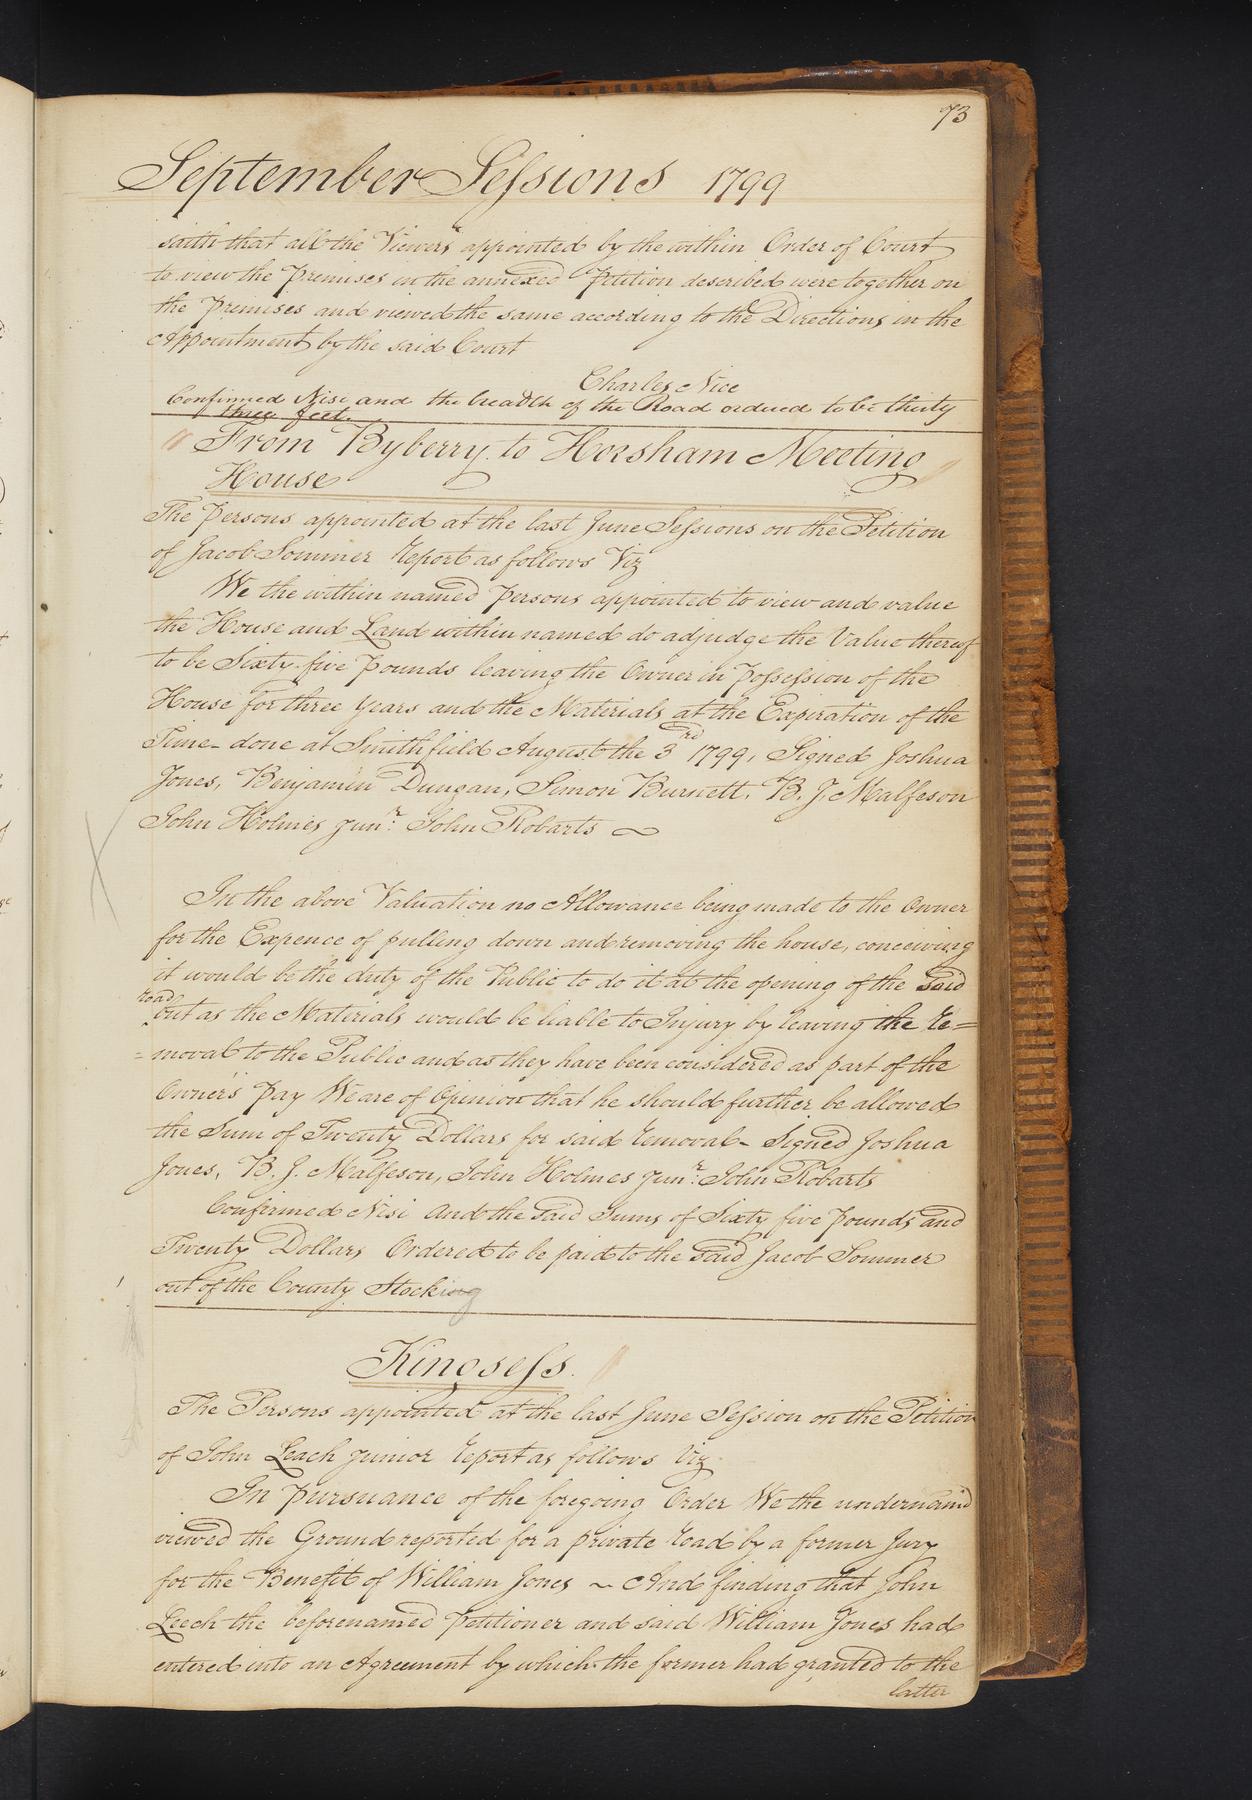 73
September Sessions 1799
saith that all the Viewers appointed by the within Order of Court
to view the Premises in the annexed Petition described were together on
the Premises and viewed the same according to the Directions in the
Appointment by the said Court
Charles Nice
Confirmed Nisi and the breadth of the Road ordered to be thirty
three feet.
From Byberry to Horsham Meeting
House
The Persons appointed at the last June Sessions on the Petition
of Jacob Sommer report as follows Viz
We the within named Persons appointed to view and value
the House and Land within named do adjudge the Value thereof
to be Sixty five Pounds leaving the Owner in Possession of the
House for three Years and the Materials at the Expiration of the
Time - done at Smithfield August the 3rd 1799, Signed Joshua
Jones, Benjamin Dungan, Simon Burnett, B. J. Malfeson
John Holmes junr. John Robarts
In the above Valuation no Allowance being made to the Owner
for the Expence of pulling down and removing the house, conceiving
it would be the duty of the Public to do it at the opening of the said
road
but as the Materials would be liable to Injury by leaving the Re=
=moval to the Public and as they have been considered as part of the
Owner's Pay We are of Opinion that he should further be allowed
the Sum of Twenty Dollars for said removal - Signed Joshua
Jones, B. J. Malfeson, John Holmes junr. John Robarts
Confirmed Nisi And the said Sums of Sixty five Pounds and
Twenty Dollars Ordered to be paid to the said Jacob Sommer
out of the County Stocking
Kingsess.
The Persons appointed at the last June Session on the Petition
of John Leach junior report as follows Viz.
In Pursuance of the foregoing Order We the undernamd
viewed the Ground reported for a private road by a former Jury
for the Benefit of William Jones ~ And finding that John
Leech the beforenamed Petitioner and said William Jones had
entered into an Agreement by which the former had granted to the
latter